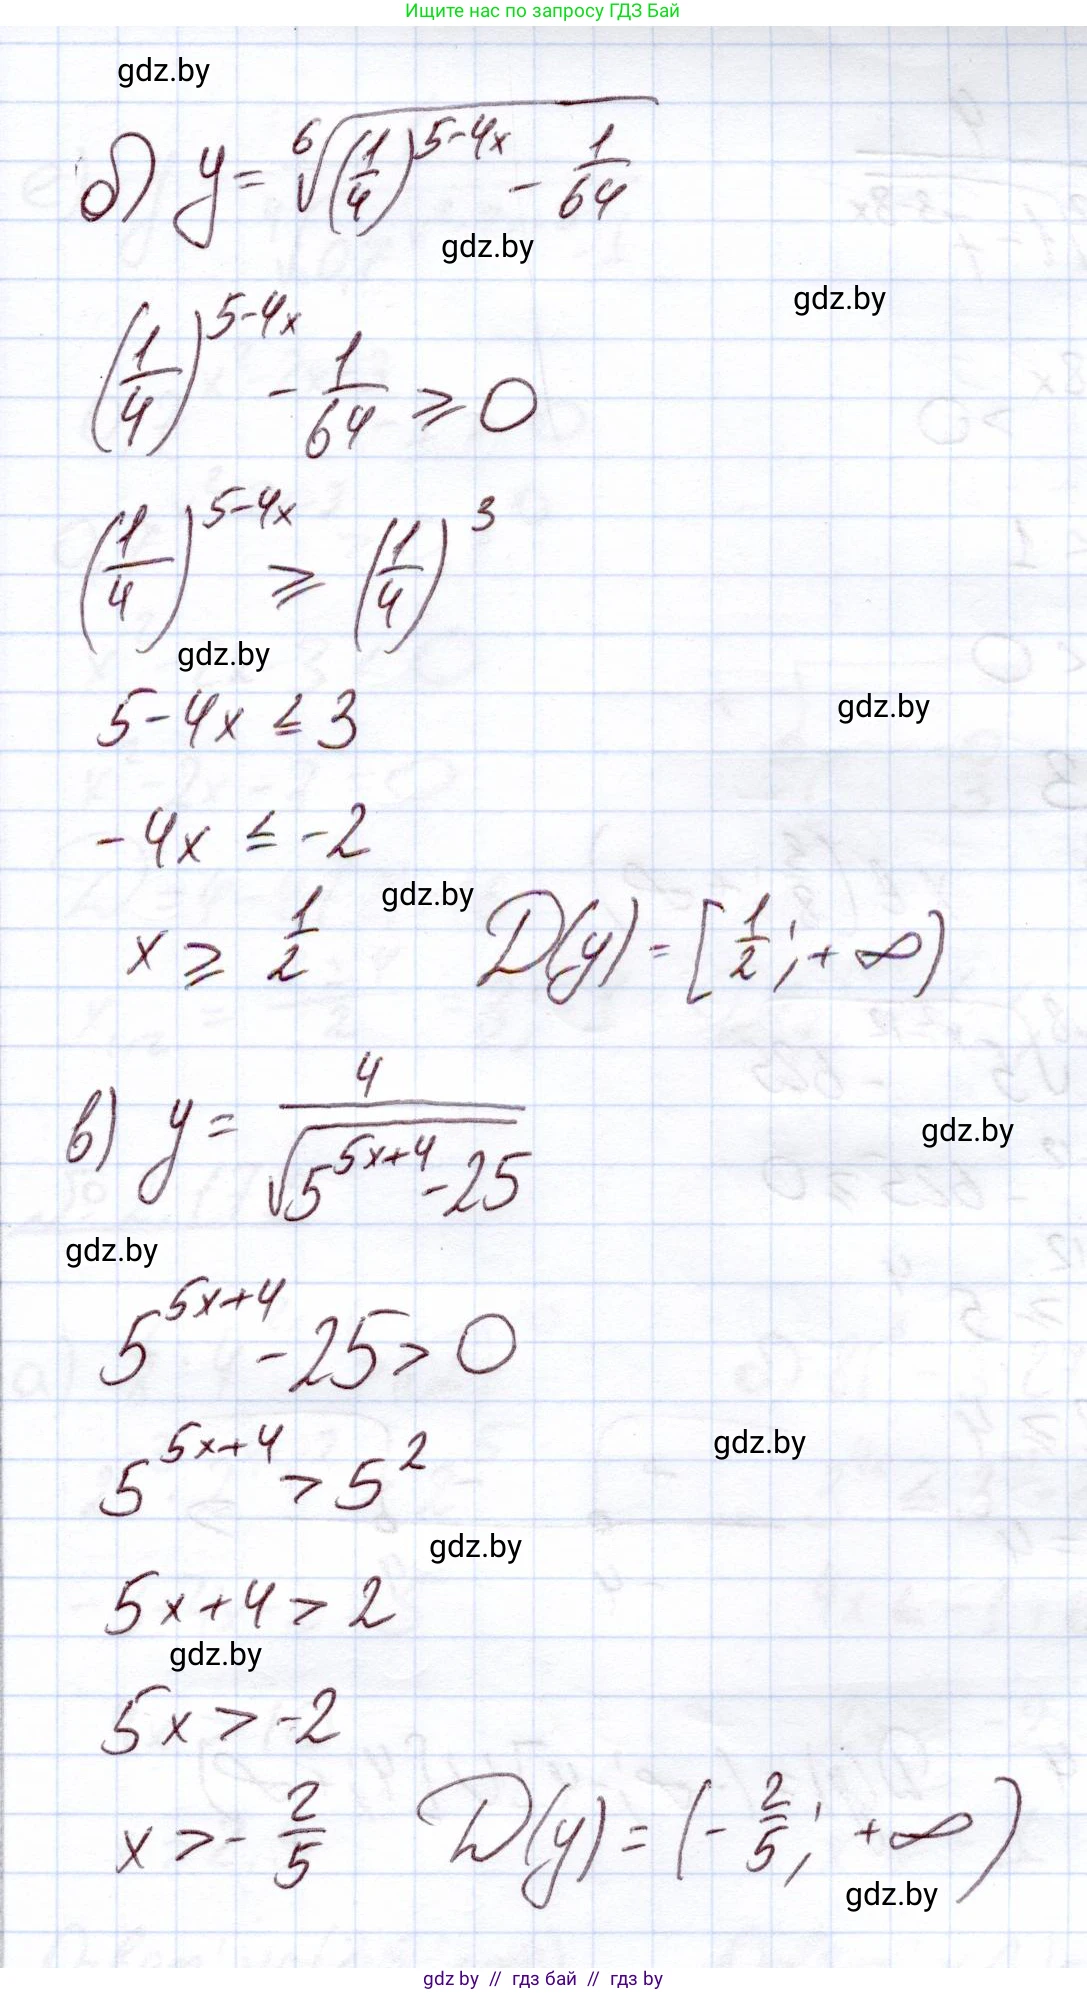 Ищите нас по запросу ГДЗ Бай
gdz.by
б) y = ⁶√((1/4)^(5-4x) - 1/64)
gdz.by
gdz.by
(1/4)^(5-4x) - 1/64 ⩾ 0
(1/4)^(5-4x) ⩾ (1/4)^3
gdz.by
5-4x ≤ 3
gdz.by
-4x ≤ -2
gdz.by
x ⩾ 1/2 D(y) = [1/2; +∞)
в) y = 4/√(5^(5x+4) - 25)
gdz.by
gdz.by
5^(5x+4) - 25 > 0
5^(5x+4) > 5^2
gdz.by
gdz.by
5x+4 > 2
gdz.by
5x > -2
x > -2/5 D(y) = (-2/5; +∞)
gdz.by
gdz by // гдз бай // гдз by